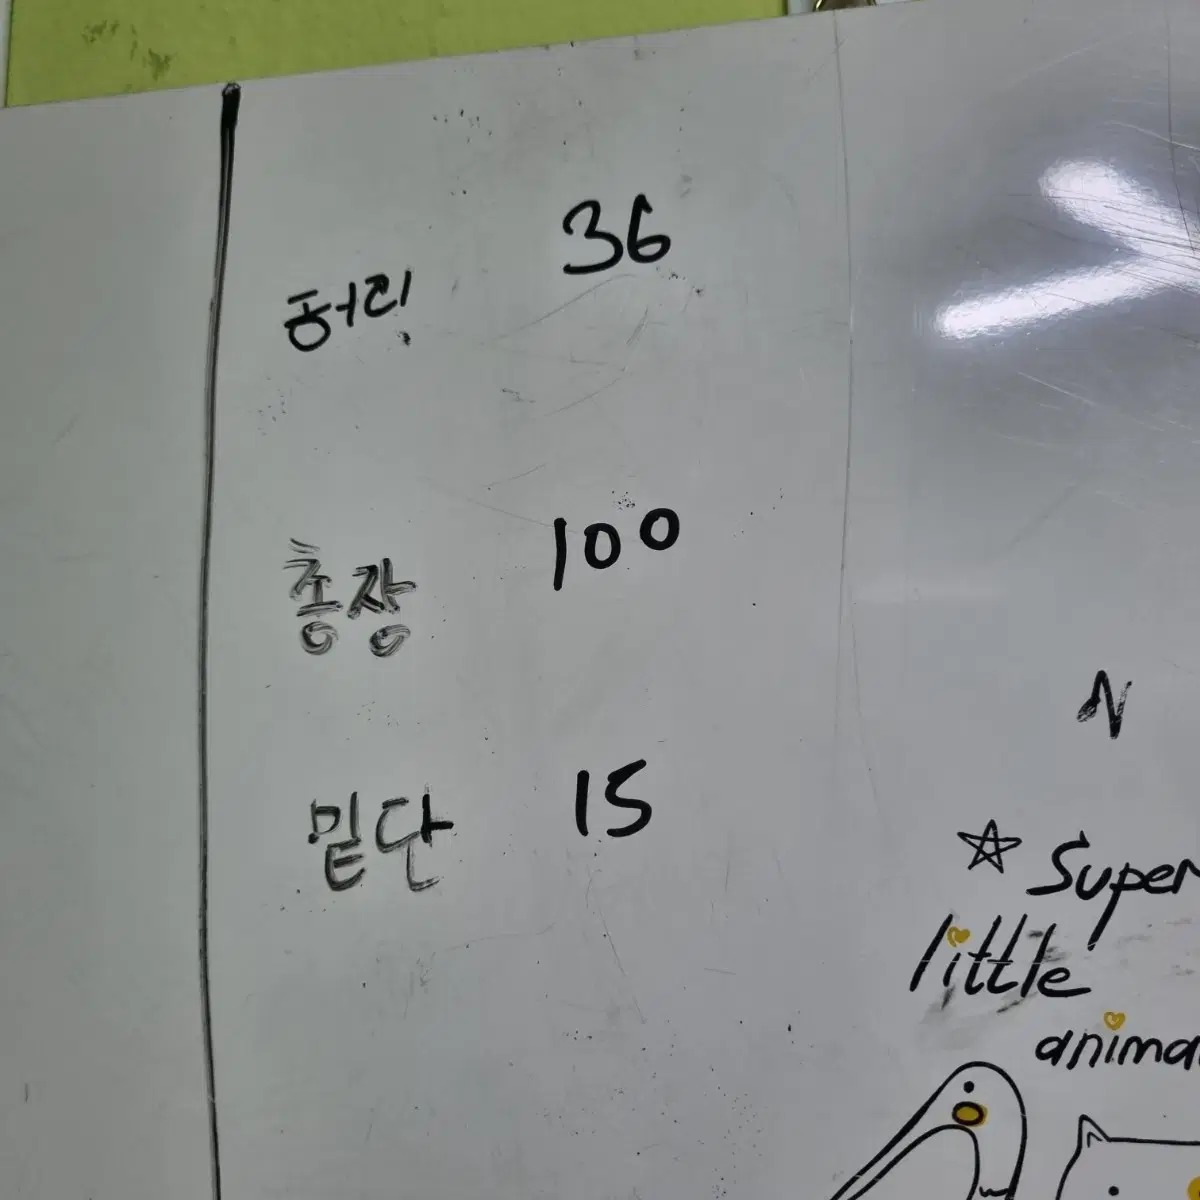 허리 36
총장 100
밑단 15
N
☆ Super
little
anima